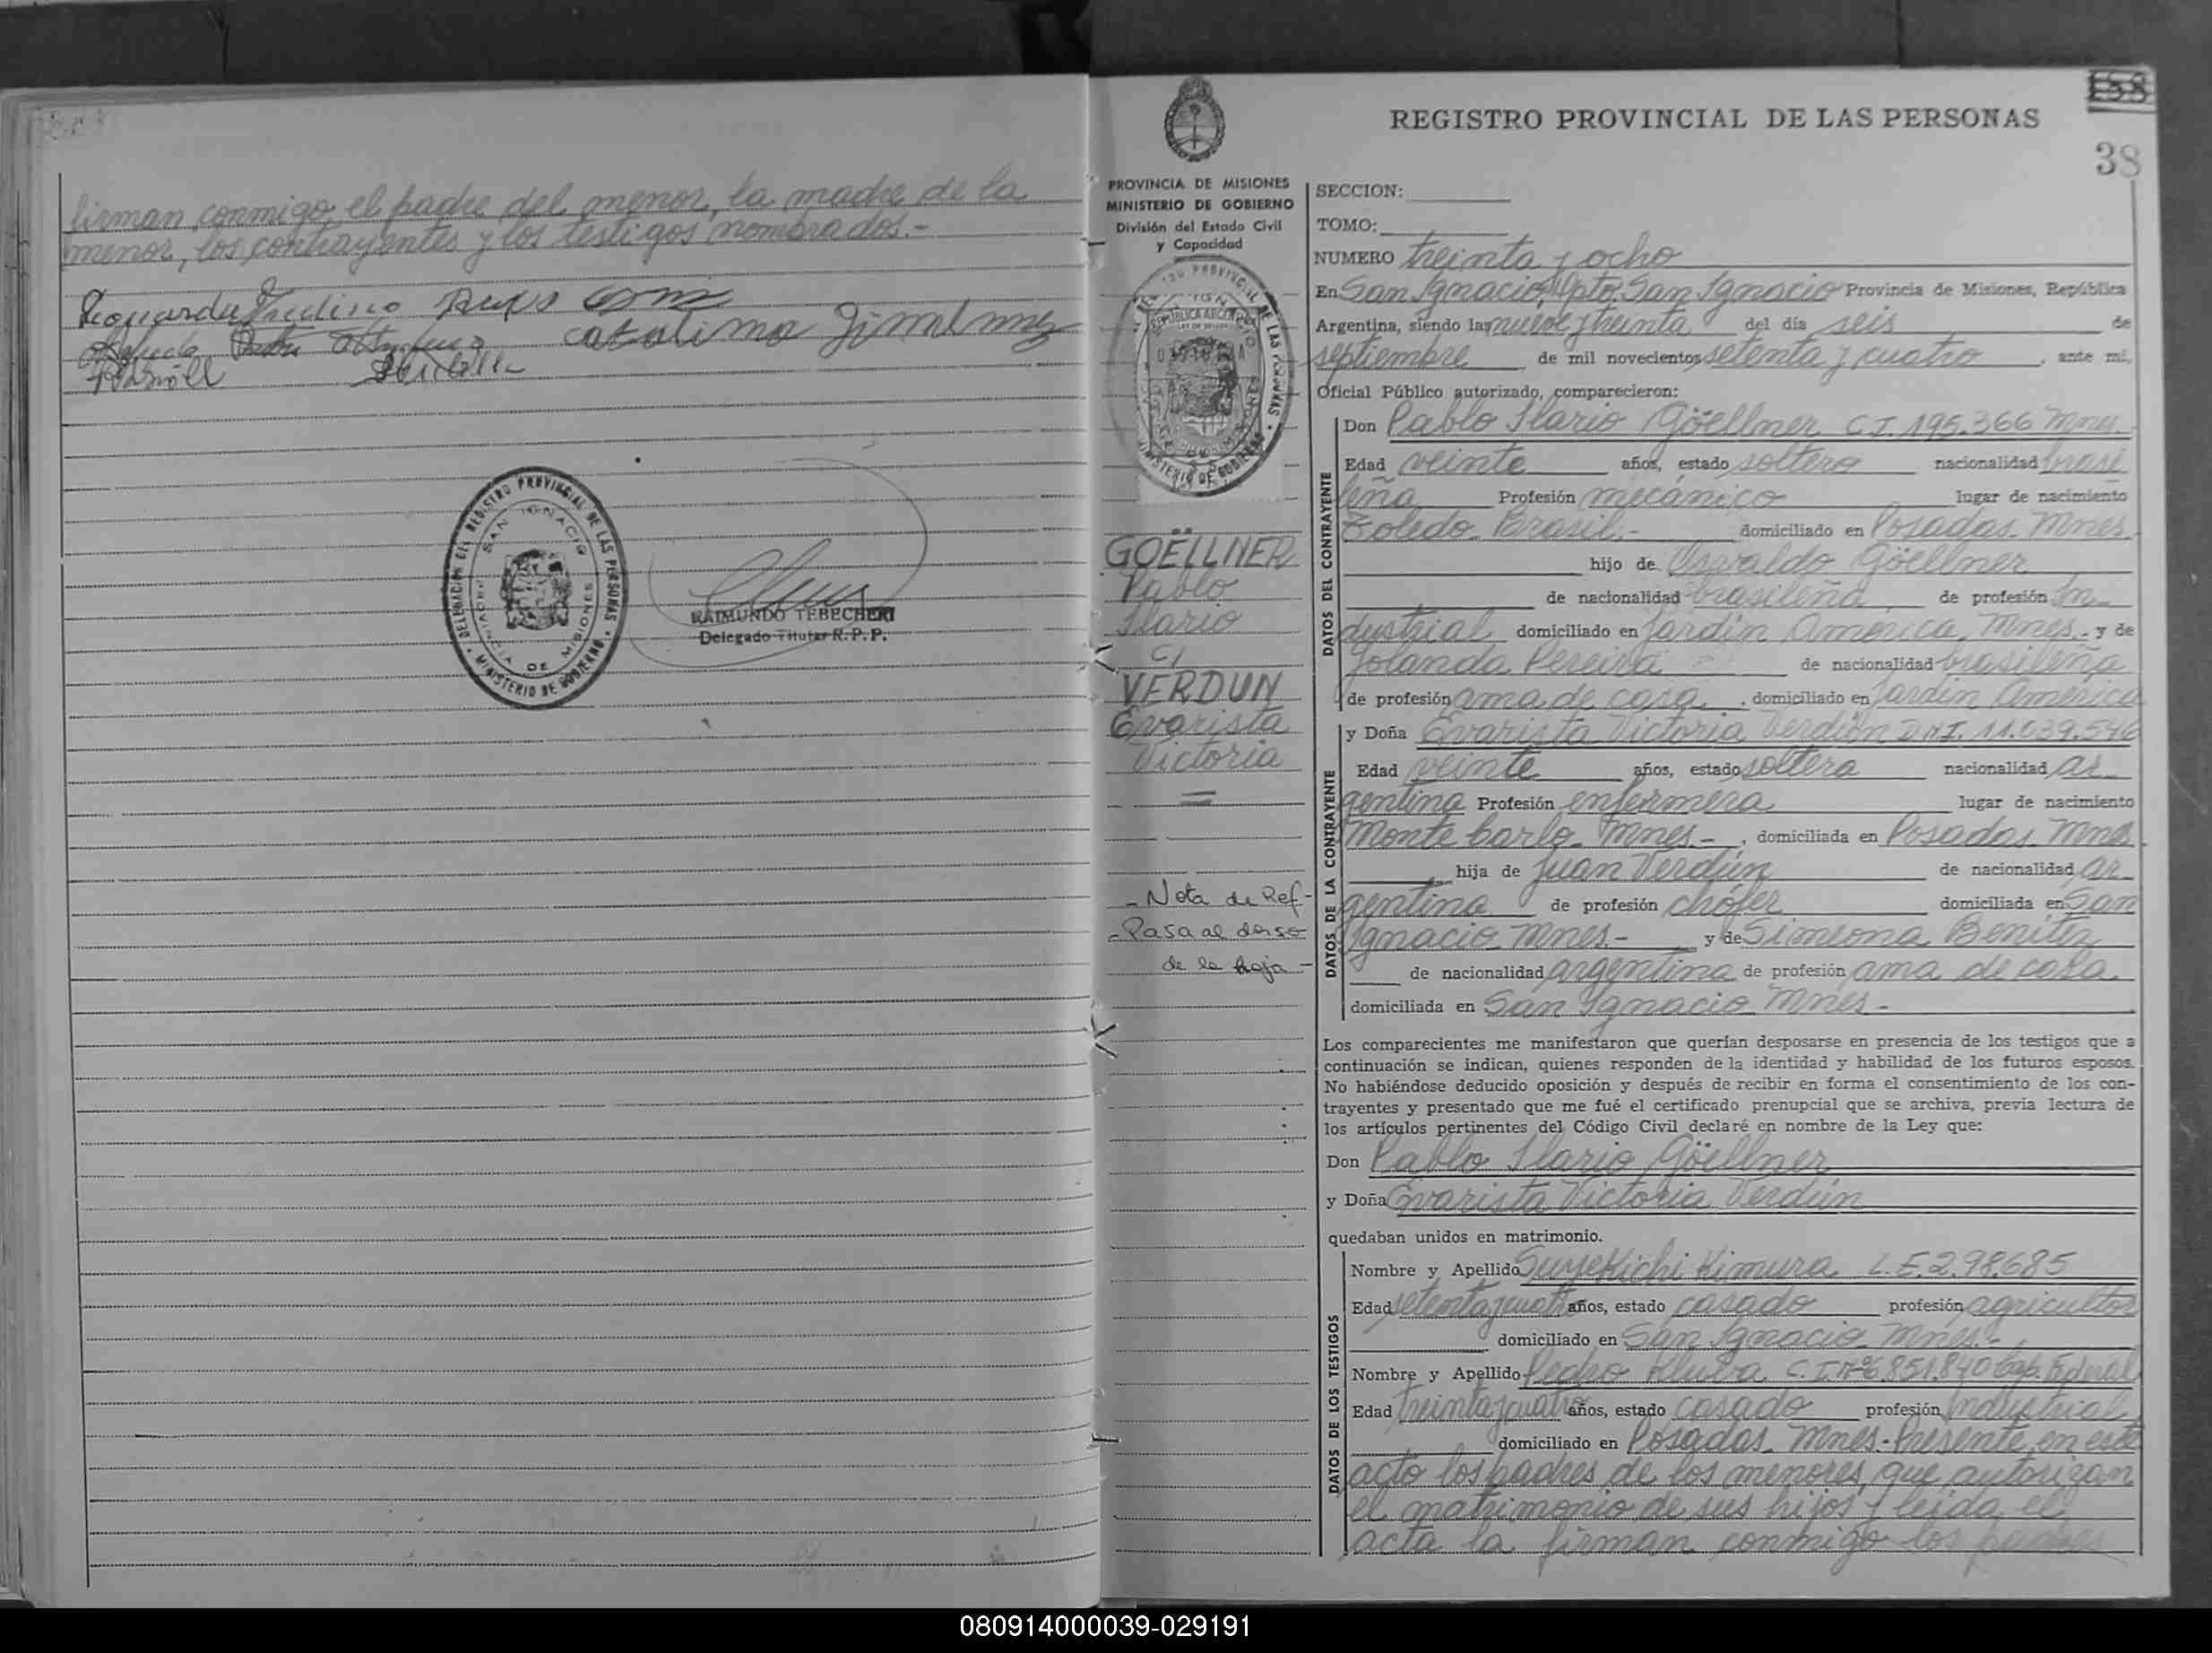 firman, conmigo, el padre del menor, la madre de la
menor, los contrayentes y los testigos nombrados.-
catalina Jimenez
DELEGACION DEL REGISTRO PROVINCIAL DE LAS PERSONAS
SAN IGNACIO
PROVINCIA DE MISIONES
MINISTERIO DE GOBIERNO
RAIMUNDO TEBECHERI
Delegado Titular R.P.P.
PROVINCIA DE MISIONES
MINISTERIO DE GOBIERNO
División del Estado Civil
y Capacidad
GOËLLNER
Pablo
Ilario
c/
VERDUN
Evarista
Victoria
=
- Nota de Ref-
- Pasa al dorso
de la hoja -
158
REGISTRO PROVINCIAL DE LAS PERSONAS
38
SECCION:
TOMO:
NUMERO treinta y ocho
En San Ignacio, Dpto. San Ignacio Provincia de Misiones, República
Argentina, siendo las nueve y treinta del día seis de
septiembre de mil novecientos setenta y cuatro, ante mi,
Oficial Público autorizado, comparecieron:
DATOS DEL CONTRAYENTE
Don Pablo Ilario Göellner C.I. 195.366 Mnes.
Edad veinte años, estado soltero nacionalidad brasi
leña Profesión mecánico lugar de nacimiento
Toledo Brasil.- domiciliado en Posadas Mnes.
hijo de Osvaldo Göellner
de nacionalidad brasileña de profesión in
dustrial domiciliado en Jardín América, Mnes. y de
Jolanda Pereira de nacionalidad brasileña
de profesión ama de casa, domiciliado en Jardín América
DATOS DE LA CONTRAYENTE
y Doña Evarista Victoria Verdún D.N.I. 11.039.546
Edad veinte años, estado soltera nacionalidad ar
gentina Profesión enfermera lugar de nacimiento
Monte Carlo Mnes.-, domiciliada en Posadas Mnes.
hija de Juan Verdún de nacionalidad ar
gentina de profesión chófer domiciliada en San
Ignacio Mnes.- y de Simeona Benitez
de nacionalidad argentina de profesión ama de casa
domiciliada en San Ignacio Mnes.-
Los comparecientes me manifestaron que querían desposarse en presencia de los testigos que a
continuación se indican, quienes responden de la identidad y habilidad de los futuros esposos.
No habiéndose deducido oposición y después de recibir en forma el consentimiento de los con-
trayentes y presentado que me fué el certificado prenupcial que se archiva, previa lectura de
los artículos pertinentes del Código Civil declaré en nombre de la Ley que:
Don Pablo Ilario Göellner
y Doña Evarista Victoria Verdún
quedaban unidos en matrimonio.
DATOS DE LOS TESTIGOS
Nombre y Apellido Suyekichi Kimura L.E. 2.98.685
Edad setenta y cuatro años, estado casado profesión agricultor
domiciliado en San Ignacio Mnes.-
Nombre y Apellido Pedro C.I. Nº 6.851.840 Cap. Federal
Edad treinta y cuatro años, estado casado profesión industrial
domiciliado en Posadas Mnes.- Presente en este
acto los padres de los menores, que autorizan
el matrimonio de sus hijos y leída el
acta la firman conmigo los padres
080914000039-029191